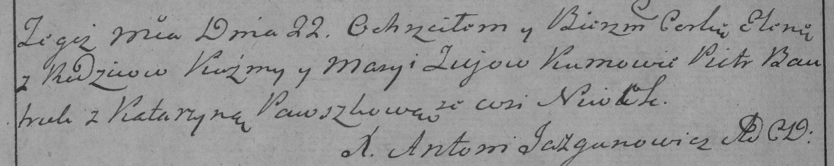 Tegoż mca Dnia 22. Ochrzciłem y Bierzm Corkę Elenę
z Rodzicow Kuźmy y Maryi Zujow Kumowie Piotr Bau
truk z Kataryną Pawszkową ze wsi Niwek.
X. Antoni Jazgunowicz AD CD: